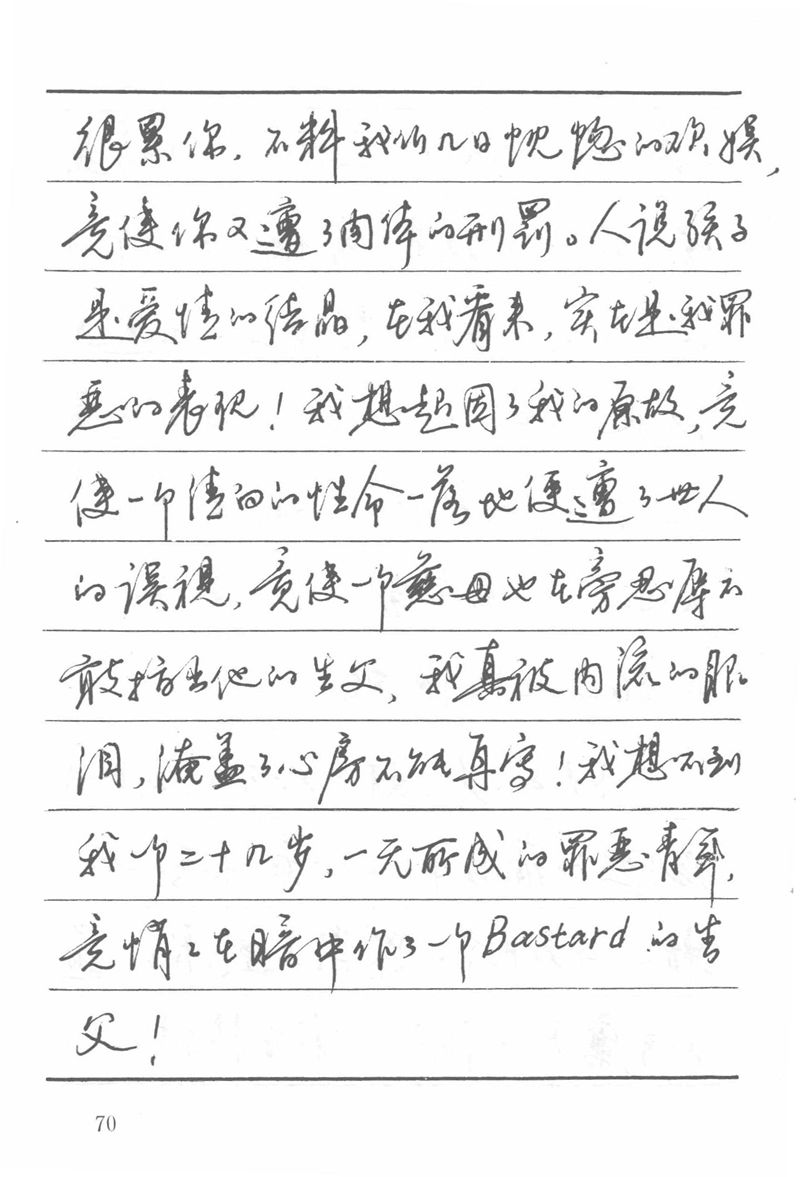 很累你，不料我们几日恍惚的欢娱，
竟使你又遭了肉体的刑罚。人说孩子
是爱情的结晶，在我看来，实在是我罪
恶的表现！我想起因了我的原故，竟
使一个清白的性命一落地便遭了世人
的误视，竟使一个慈母也在旁忍辱不
敢指出他的生父，我真被内流的眼
泪，淹盖了心房不能再写！我想不到
我个二十几岁，一无所成的罪恶青年，
竟悄々在暗中作了一个Bastard的生
父！
70